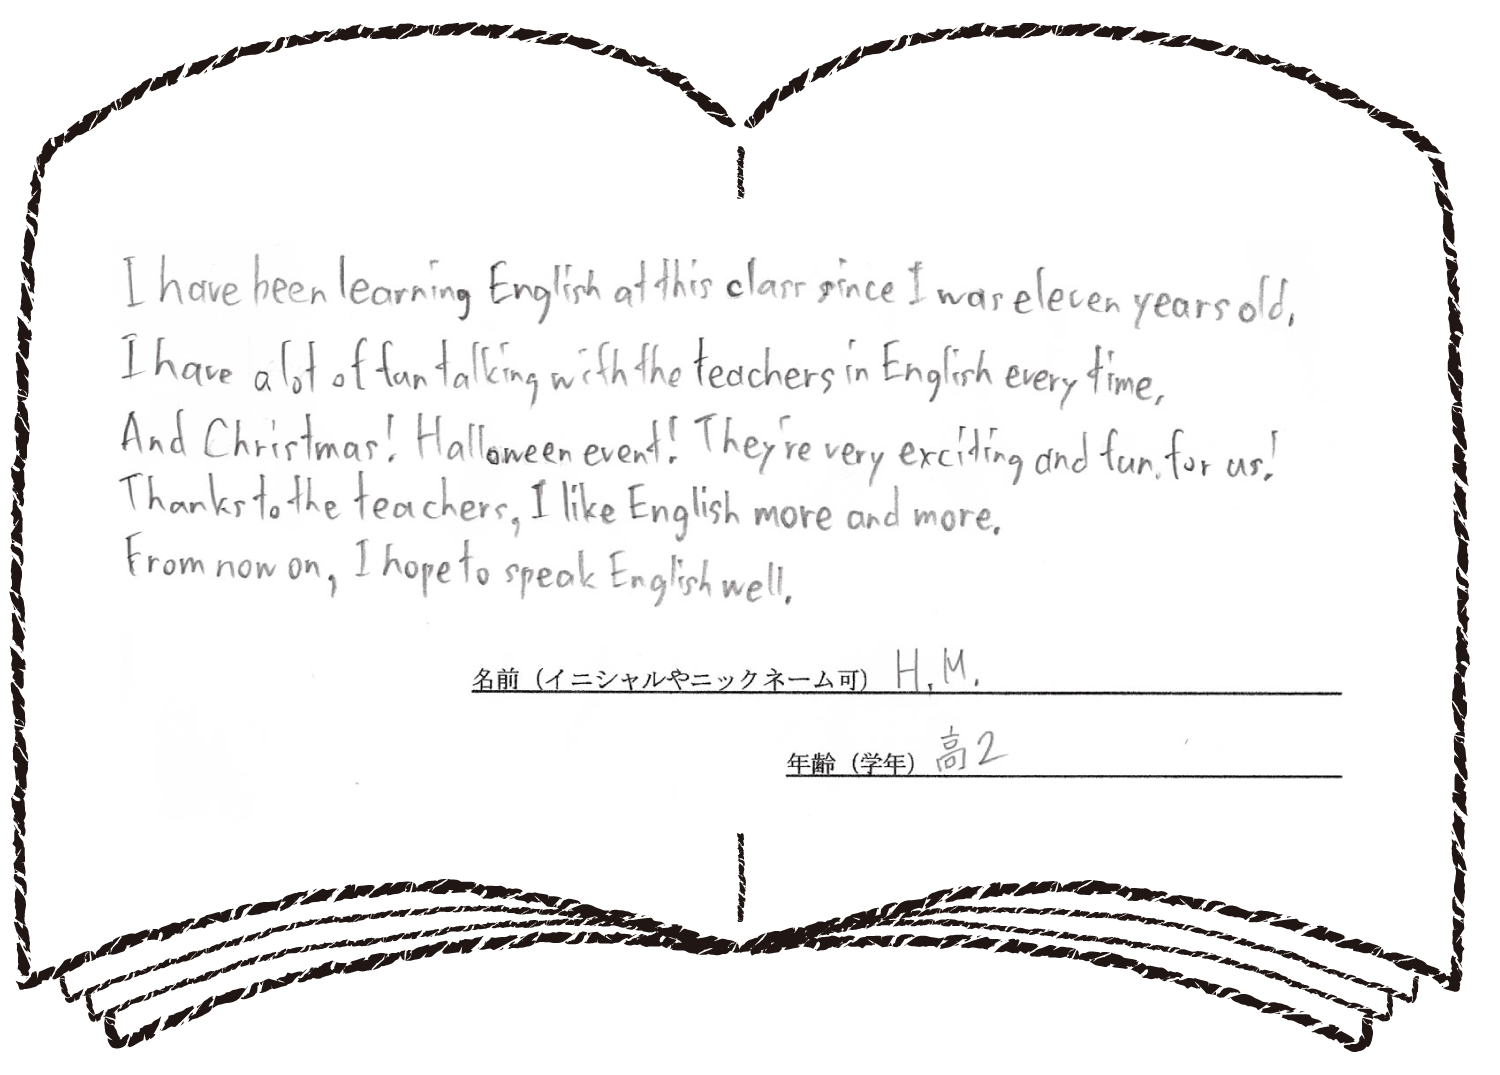 I have been learning English at this class since I was eleven years old.
I have a lot of fun talking with the teachers in English every time.
And Christmas! Halloween event! They're very exciting and fun for us!
Thanks to the teachers, I like English more and more.
From now on, I hope to speak English well.
名前（イニシャルやニックネーム可） H.M.
年齢（学年） 高2